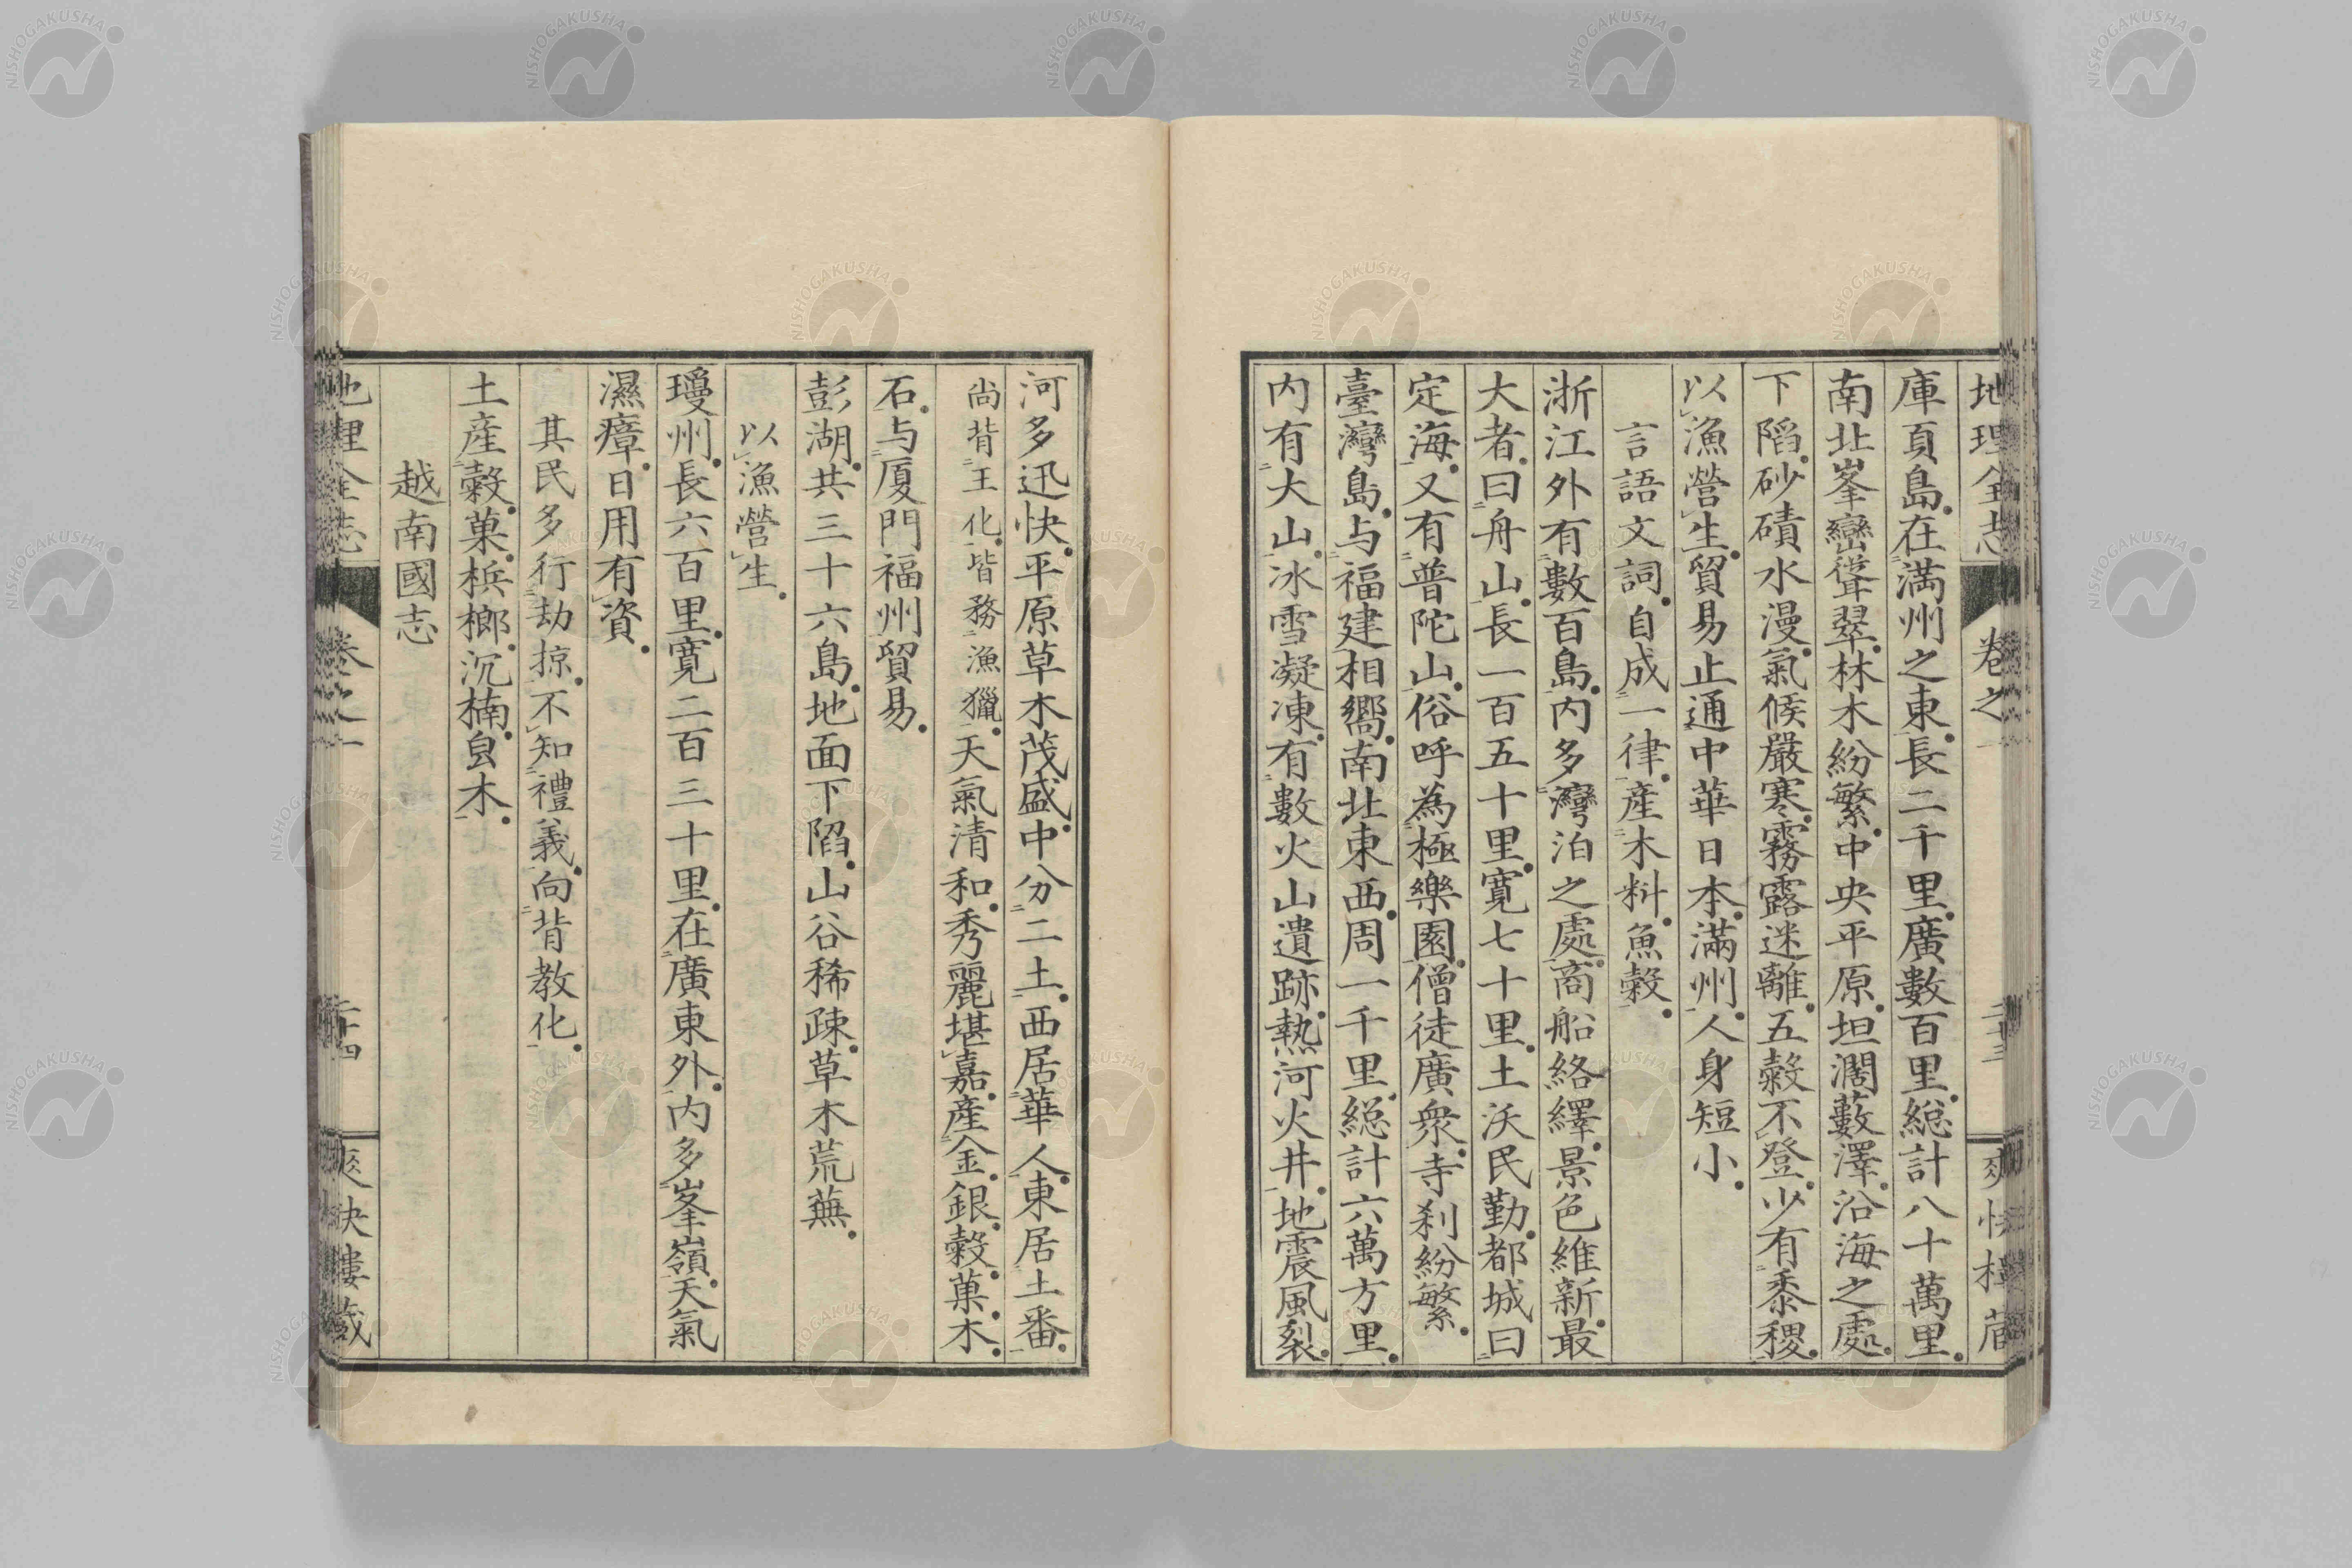 地理全志 卷之一 二十三 爽快樓蔵
庫頁島。在滿州之東。長二千里。廣數百里。総計八十萬里。
南北峯巒聳翠。林木紛繁。中央平原。坦濶藪澤。沿海之處。
下陷。砂磧水漫。氣候嚴寒。霧露迷離。五榖不登。少有黍稷。
以漁營生。貿易止通中華日本。滿州。人身短小。
言語文詞。自成一律。產木料。魚榖。
浙江外有數百島。内多灣泊之處。商船絡繹。景色維新。最
大者。曰舟山。長一百五十里。寛七十里。土沃民勤。都城曰
定海。又有普陀山。俗呼為極樂園。僧徒廣衆。寺刹紛繁。
臺灣島。与福建相嚮。南北東西。周一千里。総計六萬方里。
内有大山。冰雪凝凍。有數火山遺跡。熱河火井。地震風裂。
河多迅快。平原草木茂盛。中分二土。西居華人。東居土番。
尚背王化。皆務漁獵。天氣清和。秀麗堪嘉。産金。銀。榖。菓。木。
石。与厦門福州貿易。
彭湖。共三十六島。地面下陷。山谷稀疎。草木荒蕪。
以漁營生。
瓊州。長六百里。寛二百三十里。在廣東外。内多峯嶺。天氣
濕瘴。日用有資。
其民多行劫掠。不知禮義。向背教化。
土産榖。菓。梹榔。沉楠。臭木。
越南國志
地理全志 卷之一 二十四 爽快樓蔵